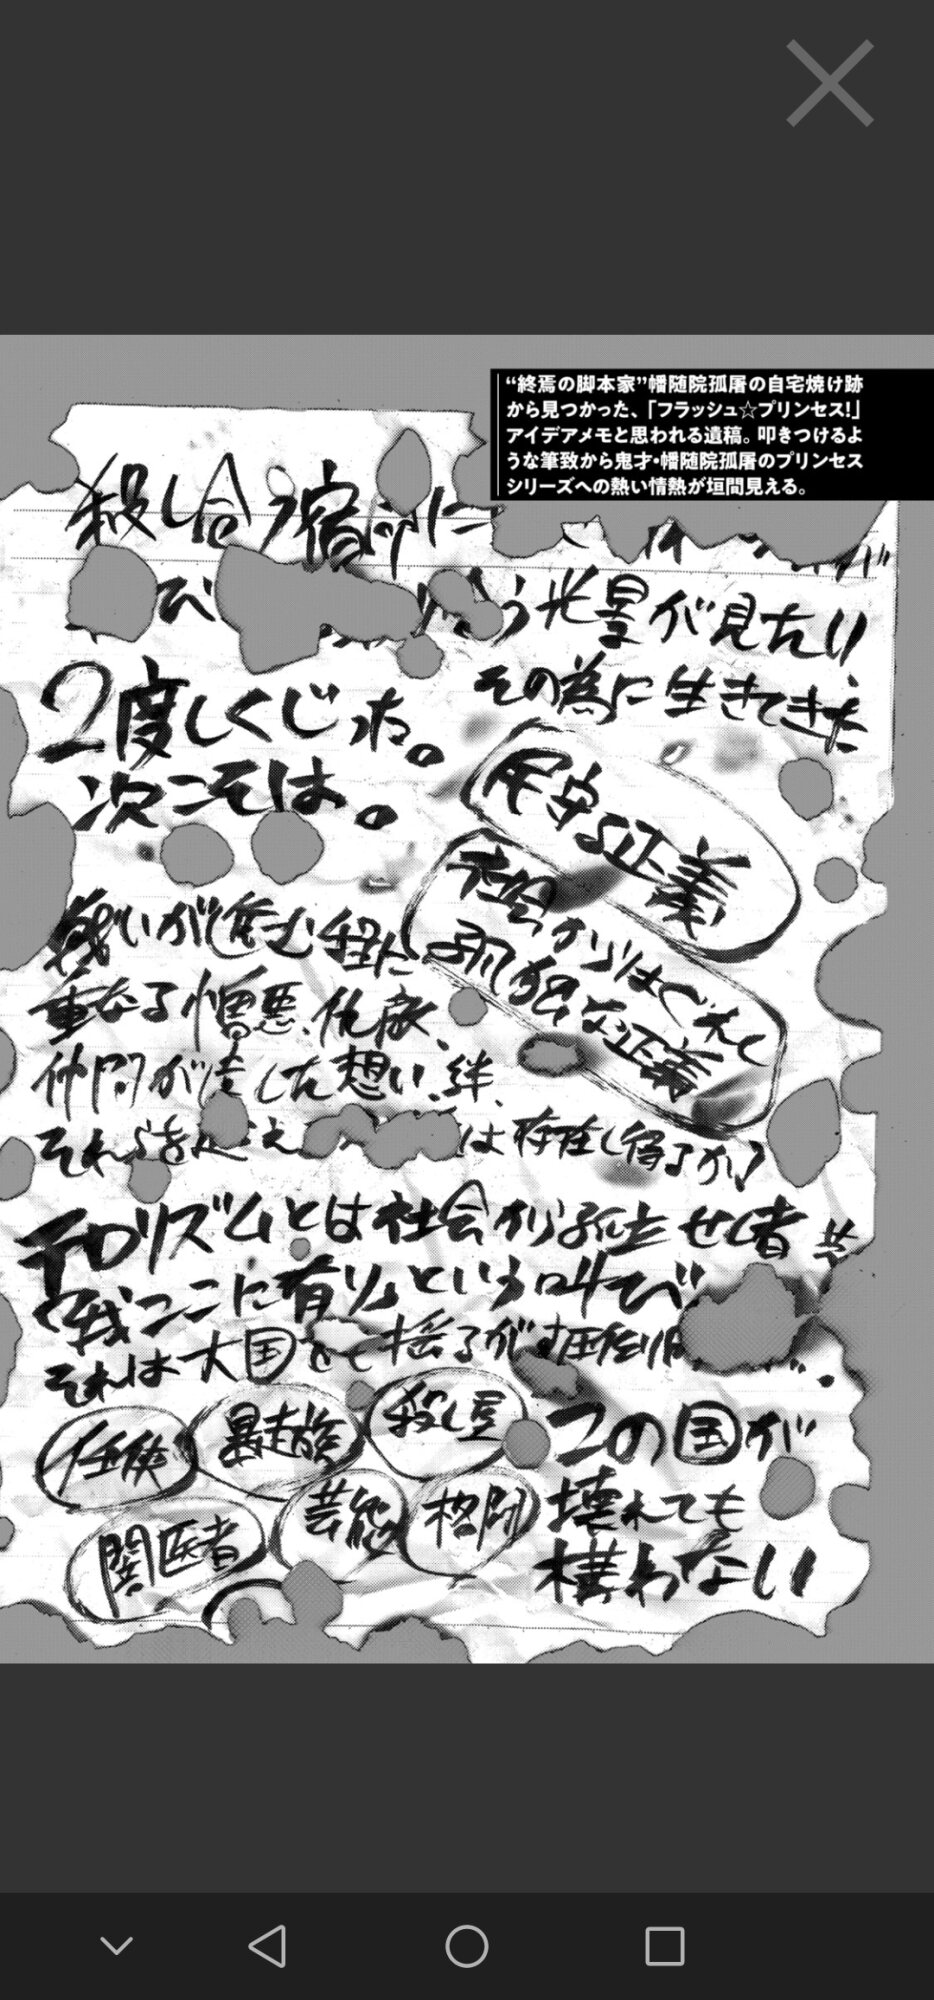 “終焉の脚本家”幡随院孤屠の自宅焼け跡
から見つかった、「フラッシュ☆プリンセス!」
アイデアメモと思われる遺稿。叩きつけるよ
うな筆致から鬼才・幡随院孤屠のプリンセス
シリーズへの熱い情熱が垣間見える。
殺し合う宿
び う光景が見たい
その為に生きてきた
2度しくじった。
次こそは。
守る正義
社会からはぐれし
孤独な正義
戦いが進む程に
重なる憎悪、仇敵、
仲間が遺した想い、絆、
それらを超え は存在し得るか?
テロリズムとは社会から孤立せし者
「我ここに有り」という叫び
それは大国をも揺るがす圧倒的
任侠
暴走族
殺し屋
闇医者
芸能
格闘
この国が
壊れても
構わない